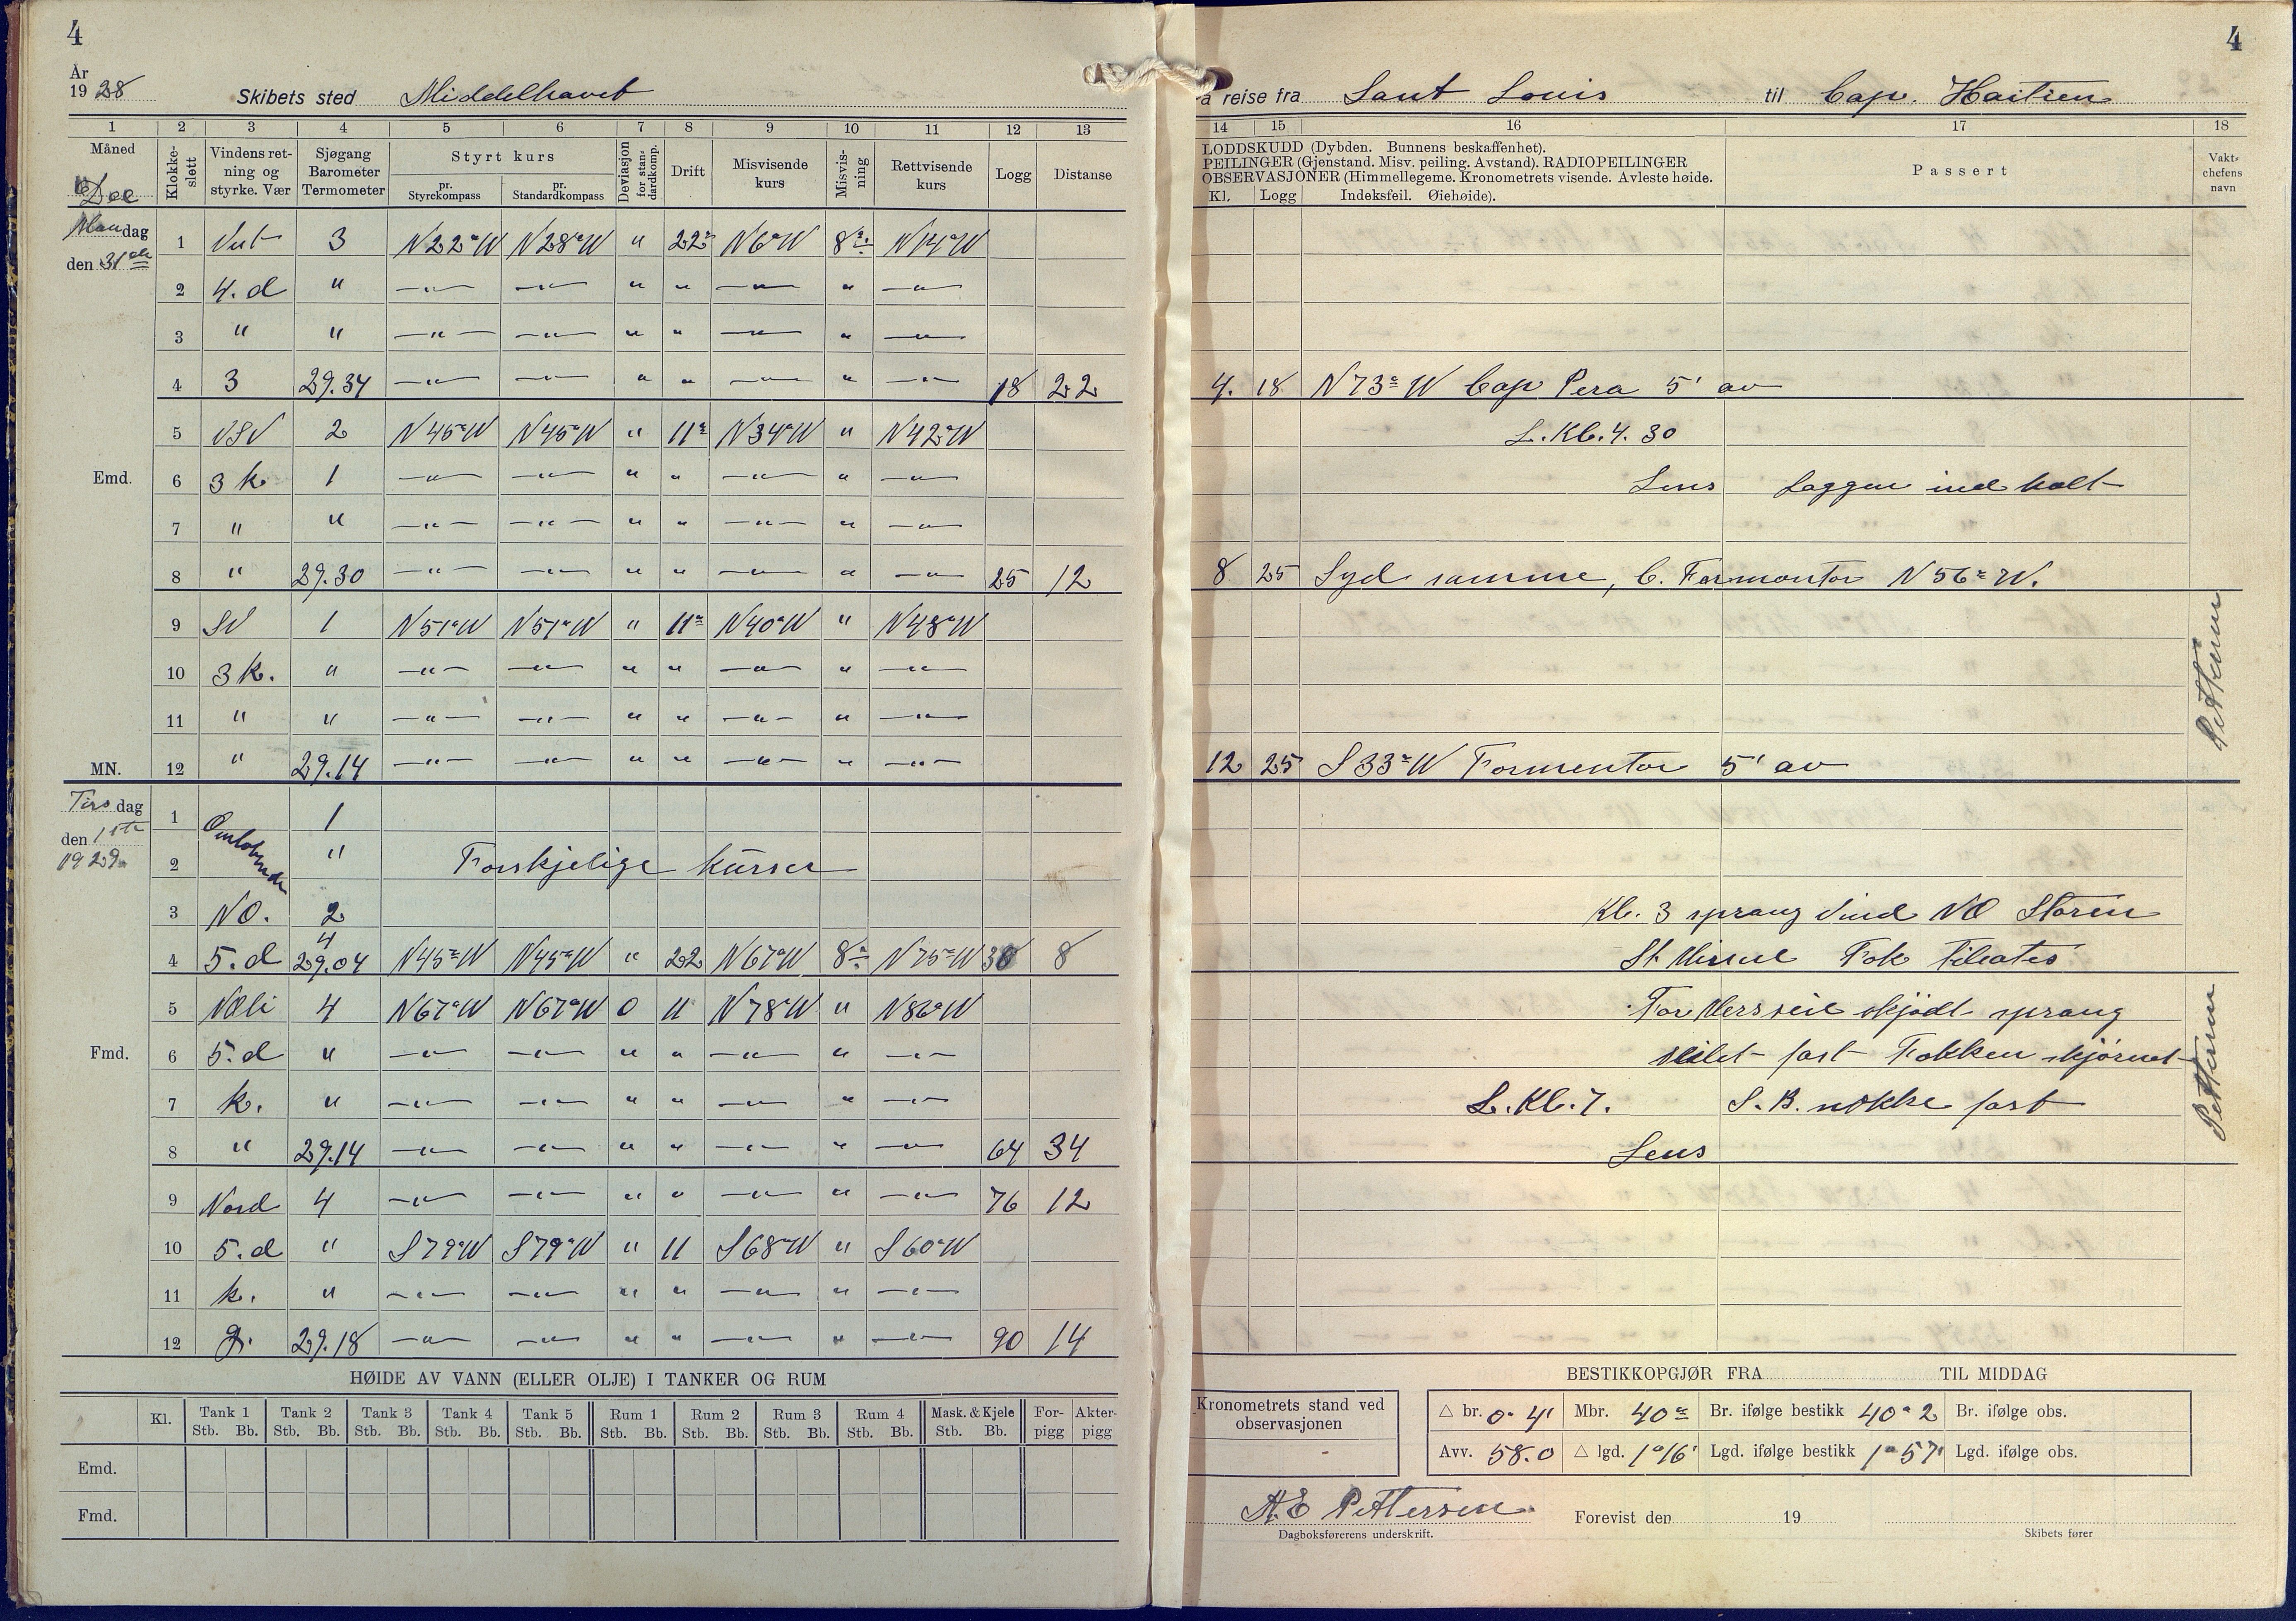 4
År
1928 Skibets sted Middelhavet
1 2 3 4 5 6 7 8 9 10 11 12 13
Måned Klokke-slett Vindens ret-ning og styrke. Vær Sjøgang Barometer Termometer Styrt kurs pr. Styrekompass pr. Standardkompass Deviasjon for stan-dardkomp. Drift Misvisende kurs Misvis-ning Rettvisende kurs Logg Distanse
Dec
Mandag 1 Vest 3 N22°W N28°W " 22° N6°W 8° N14°W
den 31te
2 4.d " —"— —"— " " —"— " —"—
3 " " —"— —"— " " —"— " —"—
4 3 29.34 —"— —"— " " —"— " —"— 18 22
5 VSV 2 N45°W N45°W " 11° N34°W " N42°W
Emd. 6 3 k. 1 —"— —"— " " —"— " —"—
7 " " —"— —"— " " —"— " —"—
8 " 29.30 —"— —"— " " —"— " —"— 25 12
9 SV 1 N51°W N51°W " 11° N40°W " N48°W
10 3 k. " —"— —"— " " —"— " —"—
11 " " —"— —"— " " —"— " —"—
MN. 12 " 29.14 —"— —"— " " —"— " —"—
Tirsdag 1 Omløbende 1
den 1ste
1929 2 " Forskjelige Kurser
3 NO. 2
4 5.d 4 29.04 N45°W N45°W " 22 N67°W 8° N75°W 30 8
5 NOli 4 N67°W N67°W 0 11 N78°W " N86°W
Fmd. 6 5.d " —"— —"— " " —"— " —"—
7 k. " —"— —"— " " —"— " —"—
8 " 29.14 —"— —"— " " —"— " —"— 64 34
9 Nord 4 —"— —"— " " —"— " —"— 76 12
10 5.d " S79°W S79°W " 11 S68°W " S60°W
11 k. " —"— —"— " " —"— " —"—
12 g. 29.18 —"— —"— " " —"— " —"— 90 14
HØIDE AV VANN (ELLER OLJE) I TANKER OG RUM
Kl. Tank 1 Tank 2 Tank 3 Tank 4 Tank 5 Rum 1 Rum 2 Rum 3 Rum 4 Mask. & Kjele For-pigg Akter-pigg
Stb. Bb. Stb. Bb. Stb. Bb. Stb. Bb. Stb. Bb. Stb. Bb. Stb. Bb. Stb. Bb. Stb. Bb. Stb. Bb.
Emd.
Fmd.
4
å reise fra Sant Louis til Cap. Haitien
14 15 16 17 18
LODDSKUDD (Dybden. Bunnens beskaffenhet).
PEILINGER (Gjenstand. Misv. peiling. Avstand). RADIOPEILINGER
OBSERVASJONER (Himmellegeme. Kronometrets visende. Avleste høide.
Kl. Logg Indeksfeil. Øiehøide).
Passert
Vakt-chefens navn
4. 18 N73°W Cap Pera 5' av
L. Kl. 4. 30
Lens Loggen ind halt
8 25 Syd samme, C. Formontor N56°W.
12 25 S33°W Formentor 5' av
Pettersen
Kl. 3 sprang Vind NO Storen
Fok tileates
For Mersseil skjødt sprang
seilet fast Fokken skjørnet
L. Kl. 7. S.B. nokke fast
Lens
Pettersen
BESTIKKOPGJØR FRA TIL MIDDAG
Kronometrets stand ved observasjonen
△ br. 0° 4' Mbr. 40° Br. ifølge bestikk 40° 2 Br. ifølge obs.
Avv. 58.0 △ lgd. 1°16' Lgd. ifølge bestikk 1°57' Lgd. ifølge obs.
A.E Pettersen Forevist den 19
Dagboksførerens underskrift. Skibets fører